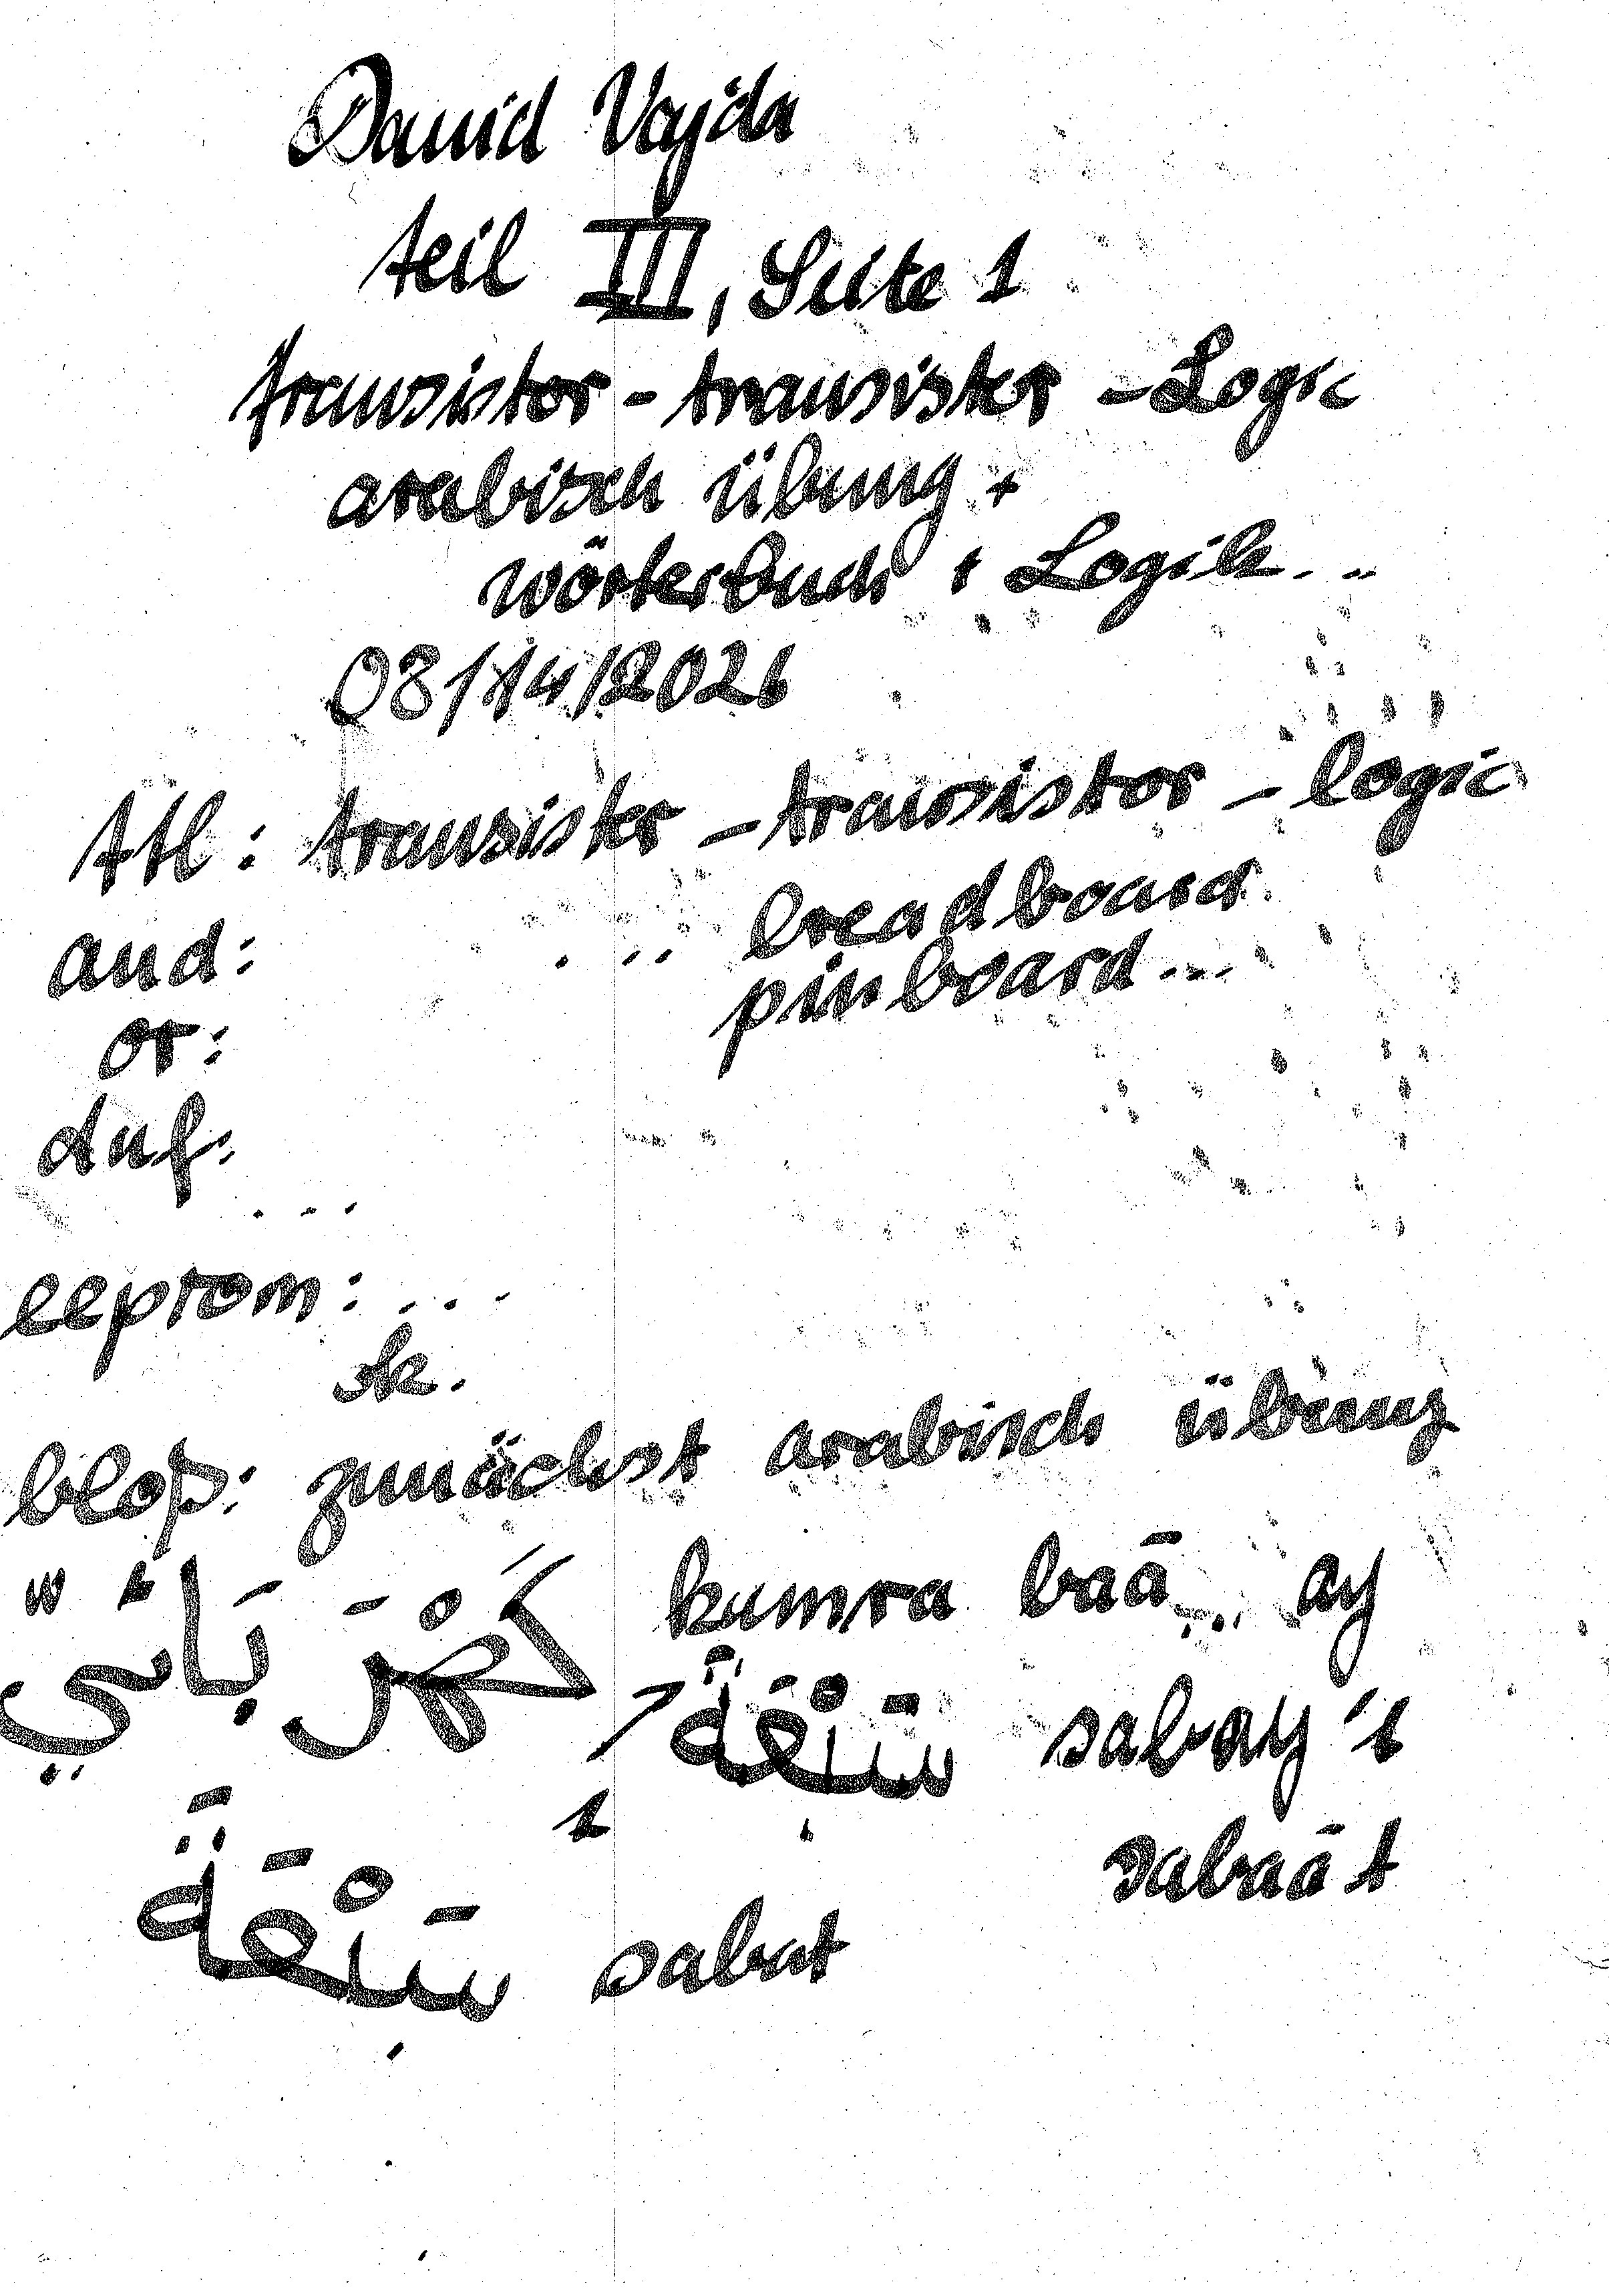 David Vajda
teil III, Seite 1
transistor - transistor - Logic
arabisch übung +
wörterbuch + Logik...
08/14/2026
ttl: transistor - transistor - logic
and: ... breadboard
pinboard...
or:
duf:
...
eeprom: ...
ok.
blop: zunächst arabisch übung
kumra baā ay
sabay't
sabaāt
sabat